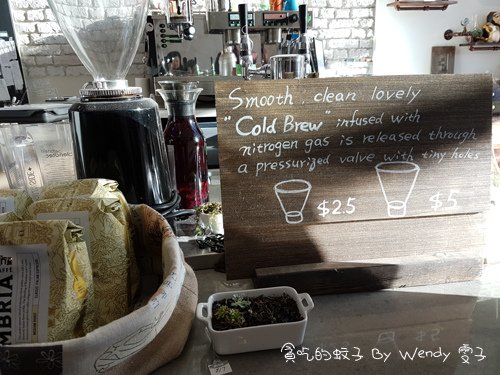 Smooth, clean, lovely
"Cold Brew" infused with
nitrogen gas is released through
a pressurized valve with tiny holes
$2.5
$5
MBRIA
貪吃的蚊子 By Wendy 雯子